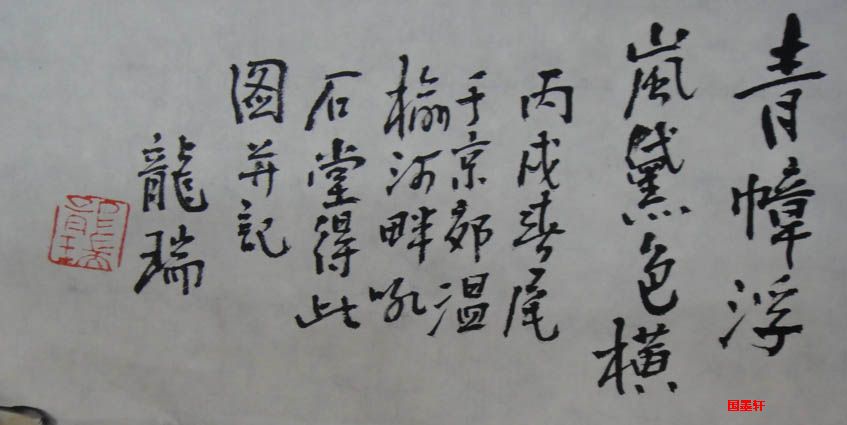 青幛浮
嵐黛色橫
丙戌春尾
于京郊温
榆河畔吼
石堂得此
图并記
龍瑞
国墨轩